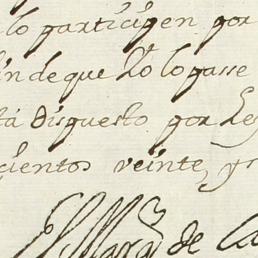 lo participen por
fin de que Vᵒ lo passe
tá dispuesto por Le
cientos veinte, y s
El Marq.^s de Ca